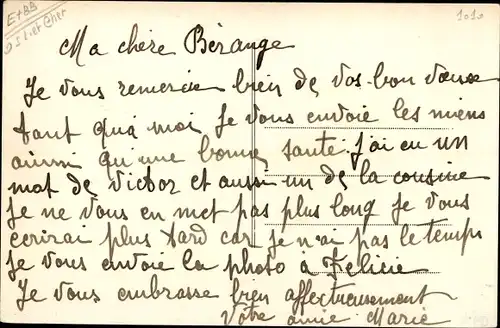 E+BB
DS Lier Cher
1010
Ma chère Bérange
Je vous remercie bien de vos bon vœux
tant qua moi Je vous envoie les miens
ainsi qu'une bonne santé. J'ai eu un
mot de Victor et aussi un de la cousine
Je ne vous en met pas plus long Je vous
ecrirai plus tard car je n'ai pas le temps
Je vous envoie la photo à Felicie
Je vous embrasse bien affectueusement
Votre amie Marie